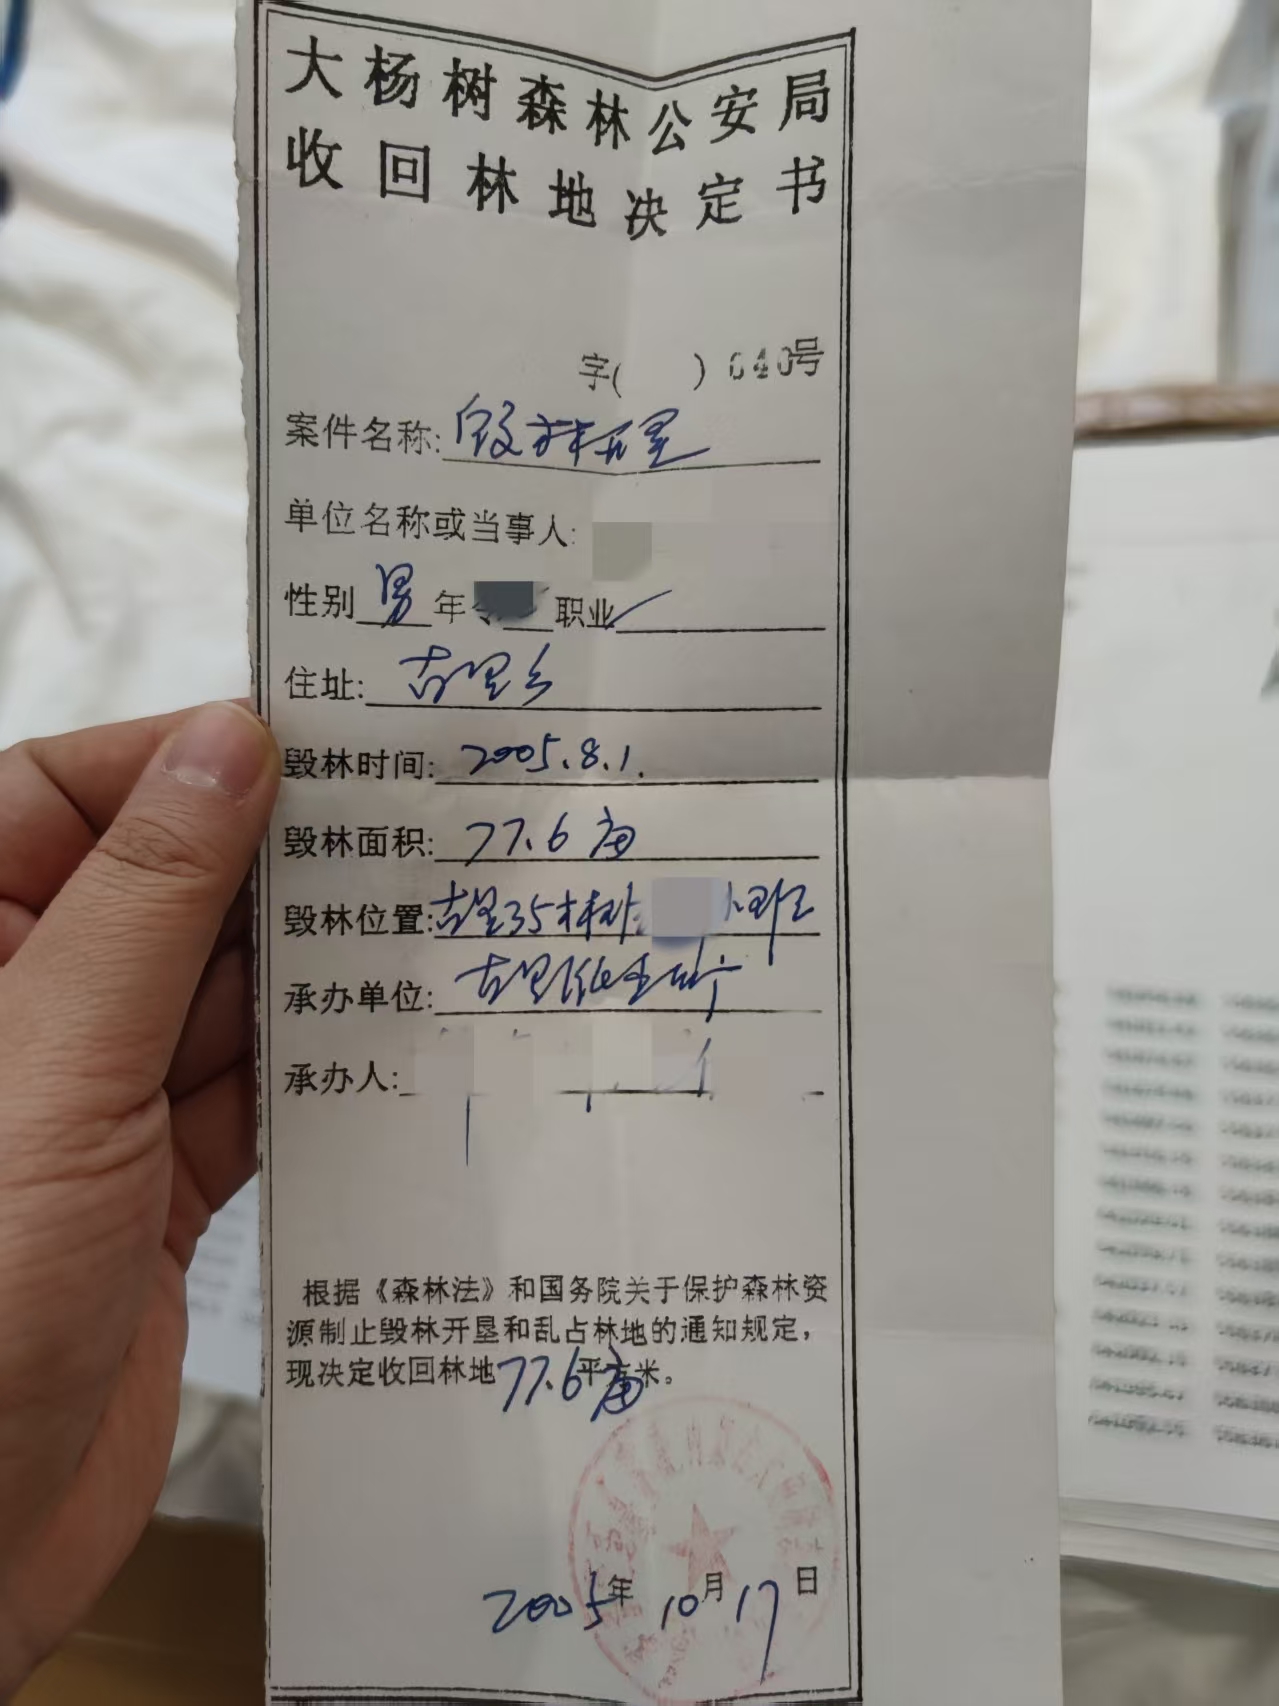 大杨树森林公安局
收回林地决定书
字( ) 040号
案件名称: 毁林开垦
单位名称或当事人:
性别 男 年 职业
住址: 古里乡
毁林时间: 2005.8.1.
毁林面积: 77.6亩
毁林位置: 古里35林班 小班
承办单位: 古里派出所
承办人:
根据《森林法》和国务院关于保护森林资
源制止毁林开垦和乱占林地的通知规定，
现决定收回林地77.6亩平方米。
2005年10月17日